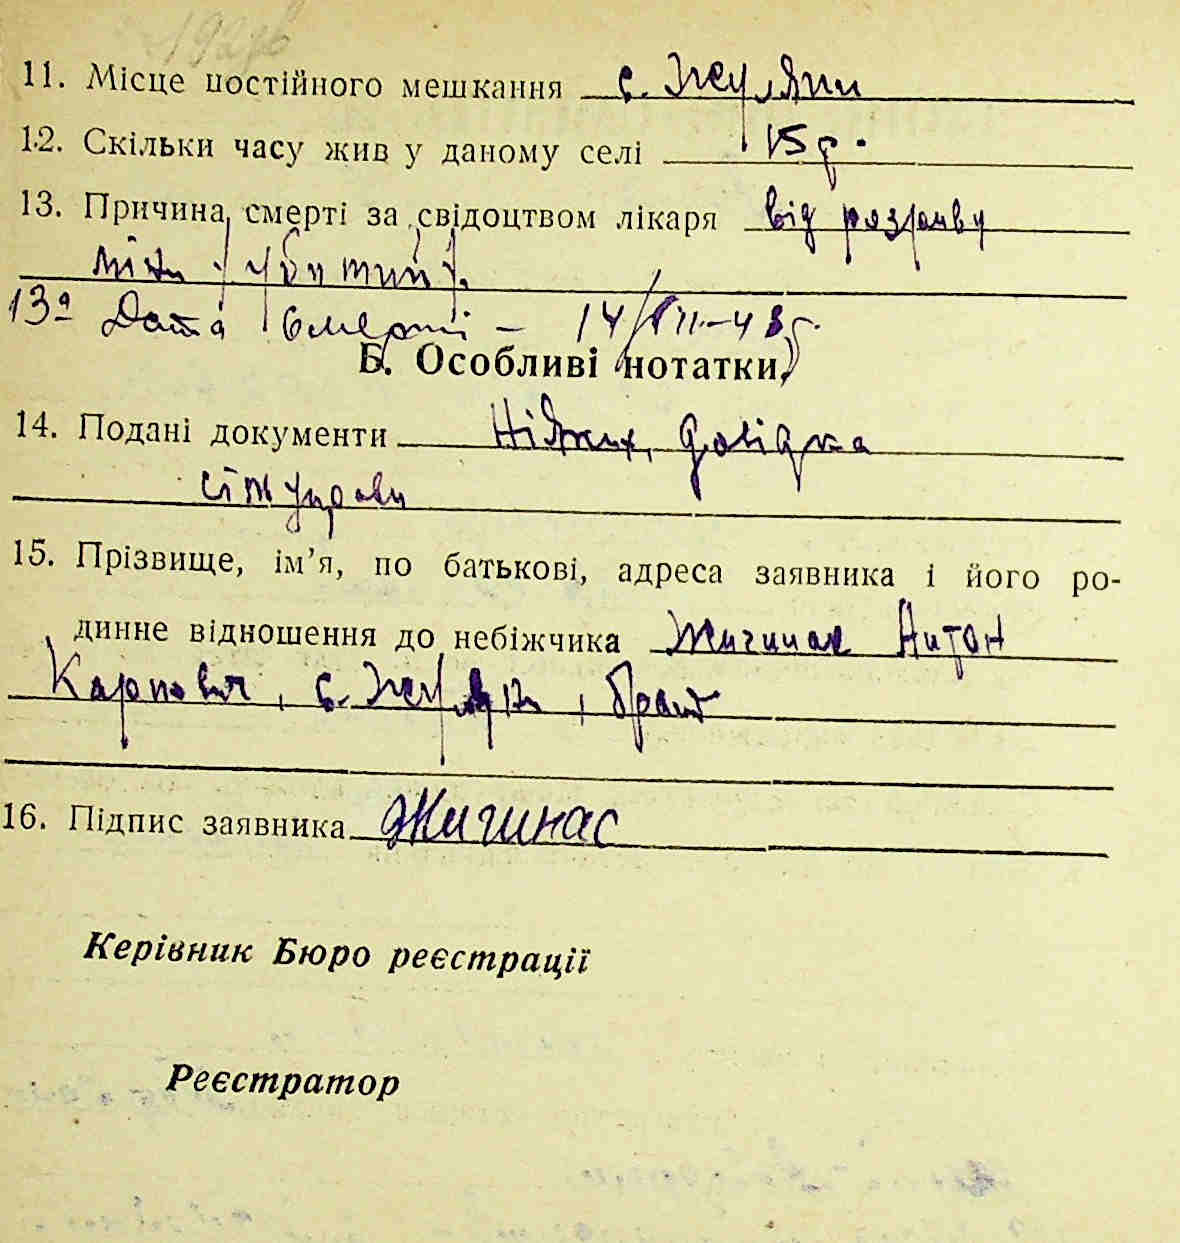 11. Місце постійного мешкання с.
12. Скільки часу жив у даному селі 15 р.
13. Причина смерті за свідоцтвом лікаря від розриву
міни /убитий/.
13а Дата смерті – 14/
Б. Особливі нотатки
14. Подані документи довідка
сільуправи
15. Прізвище, ім’я, по батькові, адреса заявника і його ро-
динне відношення до небіжчика Жигинас Антон
Карпович, с. , брат
16. Підпис заявника Жигинас
Керівник Бюро реєстрації
Реєстратор